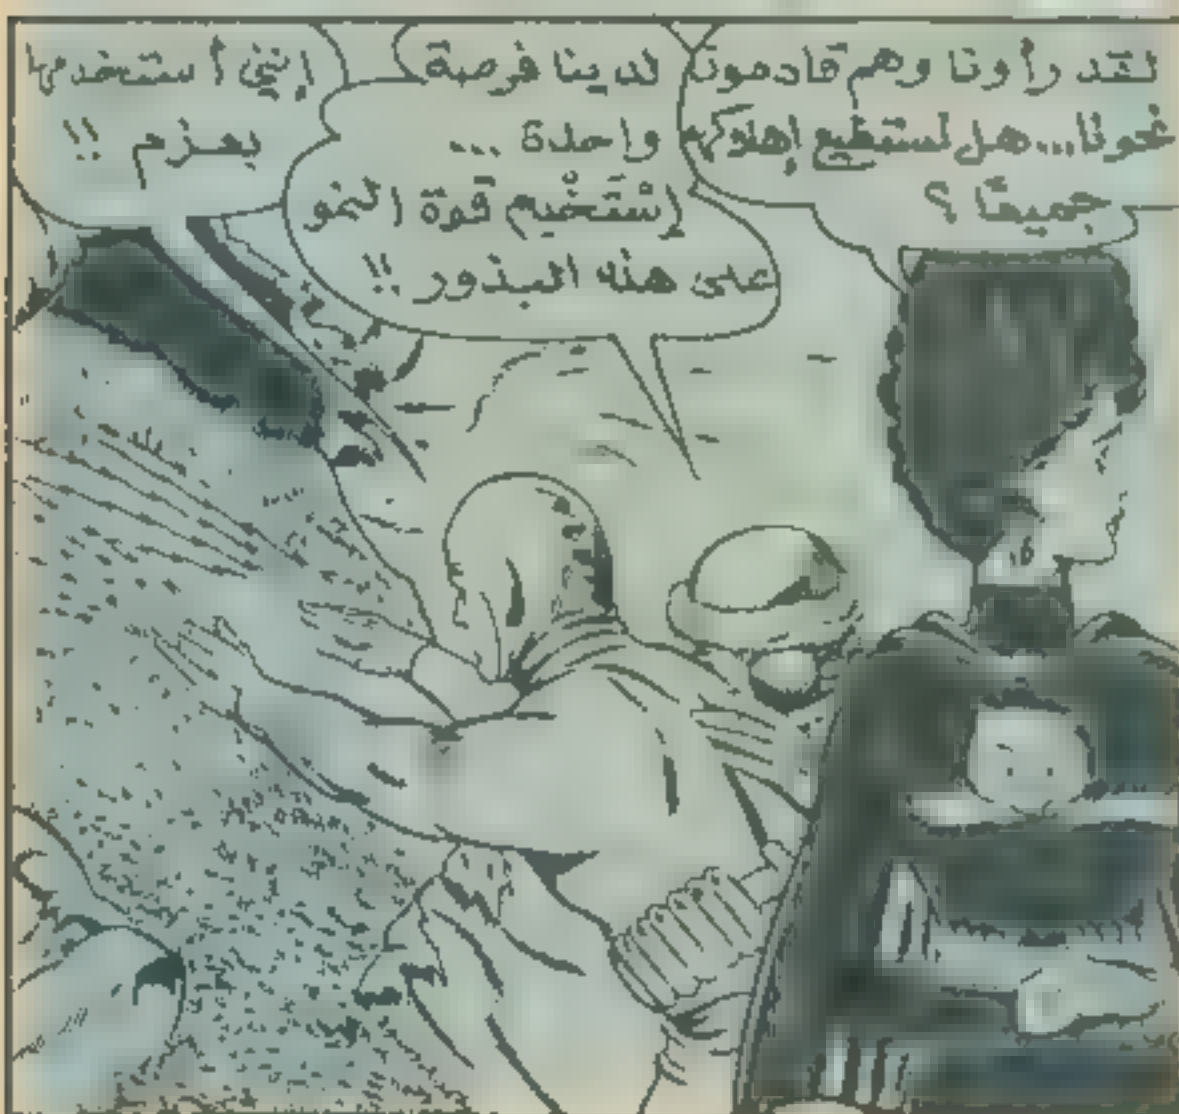 لقد رأونا وهم قادمون
نحونا... هل نستطيع إهلاكهم
جميعًا ؟
لدينا فرصة
واحدة ...
إسْتَخْدِم قوة النمو
على هذه البذور !!
إنني أستخدمها
بعزم !!